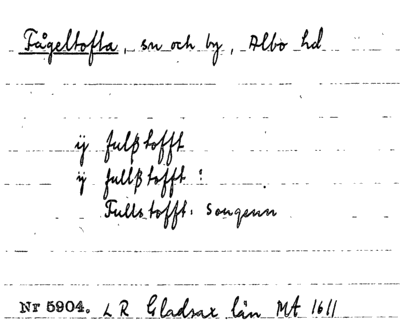 Fågeltofta, sn och by, Albo hd
ij fulßtofft
ij fullßtofft :
Fullstofft: Songenn
Nr 5904. L R Gladsax län MA 1611